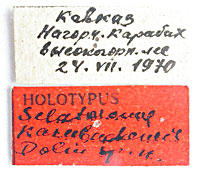 Кавказ
Нагорн. Карабах
высокогорн. лес
24. VII. 1970
HOLOTYPUS
Selatosomus
karabachensis
Dolin